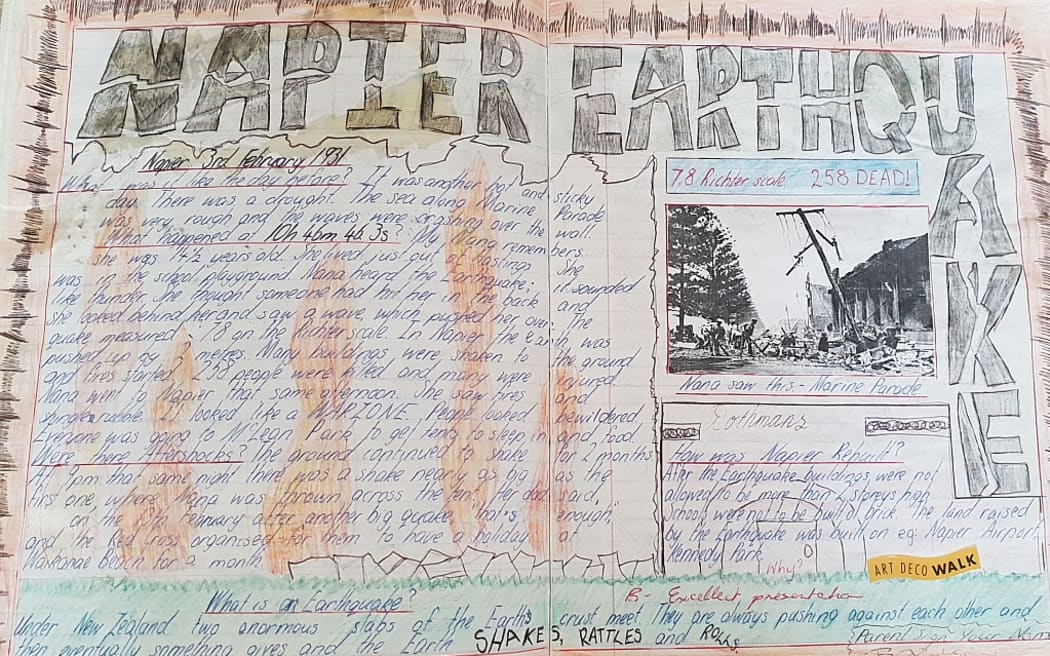 NAPIER EARTHQUAKE
Napier 3rd February 1931
What was it like the day before? It was another hot and sticky
day. There was a drought. The sea along Marine Parade
was very rough and the waves were crashing over the wall.
What happened at 10h 46m 46.3s? My Nana remembers.
she was 14½ years old. She lived just out of Hastings. She
was in the school playground. Nana heard the Earthquake; it sounded
like thunder. She thought someone had hit her in the back and
she looked behind her and saw a wave, which pushed her over. The
quake measured 7.8 on the Richter scale. In Napier the Earth was
pushed up metres. Many buildings were shaken to the ground
and fires started. 258 people were killed and many were injured.
Nana went to Napier that same afternoon. She saw fires and
rubble. It looked like a WARZONE. People looked bewildered
Everyone was going to McLean Park to get tents to sleep in and food.
Were there Aftershocks? The ground continued to shake for 2 months
At 9pm that same night there was a shake nearly as big as the
first one, where Nana was thrown across the tent. Her dad said,
on the February after another big quake "that's enough,"
and the Red Cross organised for them to have a holiday at
Waikanae Beach for a month.
7.8 Richter scale 258 DEAD!
Nana saw this - Marine Parade.
Rothmans
How was Napier Rebuilt?
After the Earthquake buildings were not
allowed to be more than 2 storeys high.
Schools were not to be built of brick. The land raised
by the Earthquake was built on eg: Napier Airport,
Kennedy Park.
Why?
ART DECO WALK
B- Excellent presentation
What is an Earthquake?
Under New Zealand two enormous slabs of the Earth's crust meet. They are always pushing against each other and
then eventually something gives and the Earth SHAKES, RATTLES and ROLLS.
Parent sign Your Name